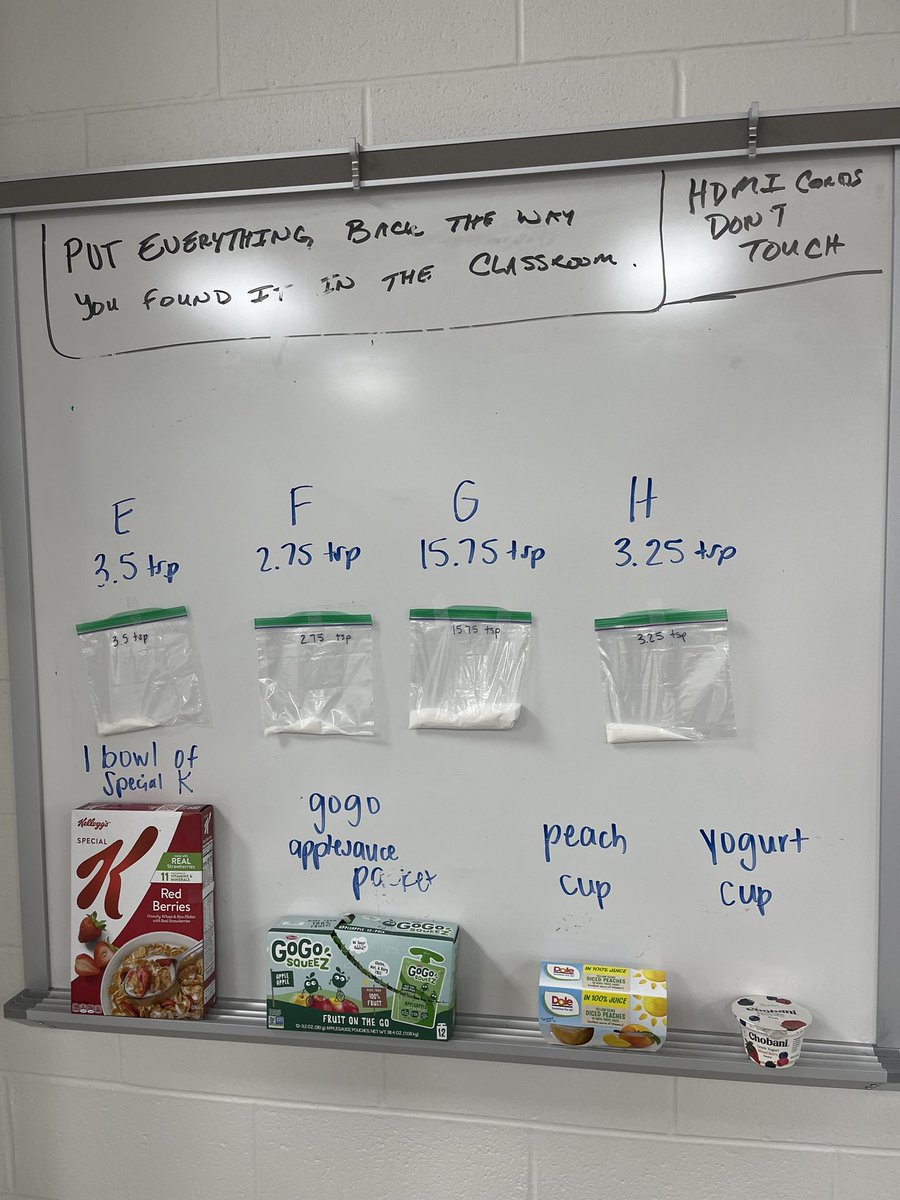 PUT EVERYTHING BACK THE WAY
YOU FOUND IT IN THE CLASSROOM.
HDMI CORDS
DON'T
TOUCH
E
F
G
H
3.5 tsp
2.75 tsp
15.75 tsp
3.25 tsp
3.5 tsp
2.75 tsp
15.75 tsp
3.25 tsp
1 bowl of
Special K
gogo
applesauce
packet
peach
cup
yogurt
cup
Kellogg's
SPECIAL
K
REAL
Strawberries
11 VITAMINS &
MINERALS
Red
Berries
Crunchy Wheat & Rice Flakes
with Real Strawberries
GOGO
SQUEEZ
APPLE
APPLE
100%
FRUIT
FRUIT ON THE GO
GOGO
SQUEEZ
GOGO
12
Dole
IN 100% JUICE
DICED PEACHES
Dole
IN 100% JUICE
DICED PEACHES
Chobani
Chobani